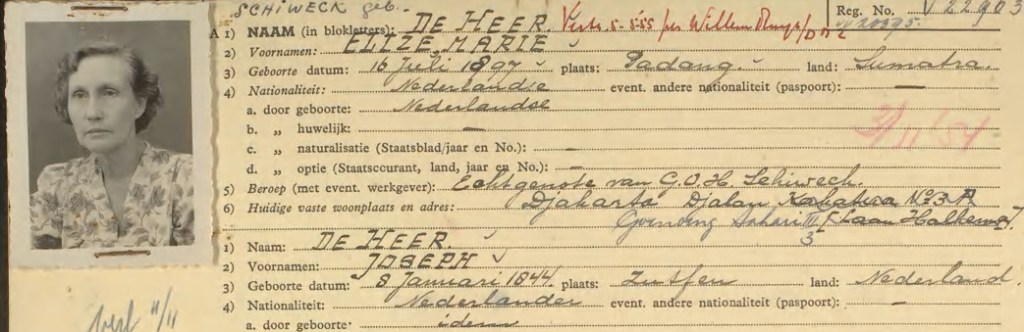 SCHIWECK geb.
Reg. No. V 22903
A 1) NAAM (in blokletters): DE HEER. Vertr. 5-5-55 per Willem Ruys
2) Voornamen: ELIZE MARIE
3) Geboorte datum: 16 Juli 1897 plaats: Padang. land: Sumatra.
4) Nationaliteit: Nederlandse event. andere nationaliteit (paspoort): —
a. door geboorte: Nederlandse
b. „ huwelijk: —
c. „ naturalisatie (Staatsblad/jaar en No.): —
d. „ optie (Staatscourant, land, jaar en No.): —
5) Beroep (met event. werkgever): Echtgenote van C.O.H. Schiweck.
6) Huidige vaste woonplaats en adres: Djakarta Djalan No 3 A
Goenoeng Sahari (Laan
1) Naam: DE HEER.
2) Voornamen: JOSEPH
3) Geboorte datum: 8 Januari 1844. plaats: Zutfen land: Nederland.
4) Nationaliteit: Nederlander event. andere nationaliteit (paspoort): —
a. door geboorte: idem